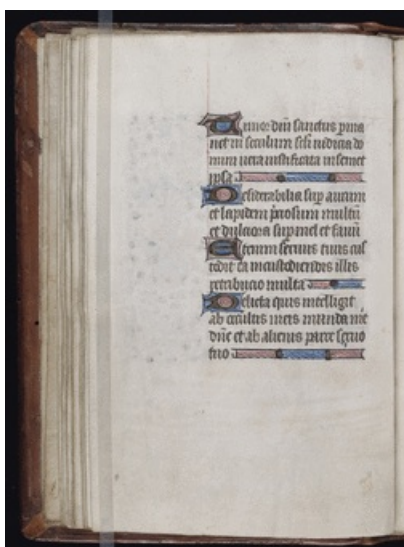 Timor dn̄i sanctus ꝑma
net in seculum sc̄li iudicia do
mini uera iustificata in semet
ipsa
Desiderabilia suꝑ aurum
et lapidem p̄ciosum multū
et dulciora suꝑ mel et fauū
Etenim seruus tuus cus
todit ea in custodiendis illis
retribucio multa
Delicta quis intelligit
ab occultis meis munda me
dn̄e et ab alienis parce seruo
tuo